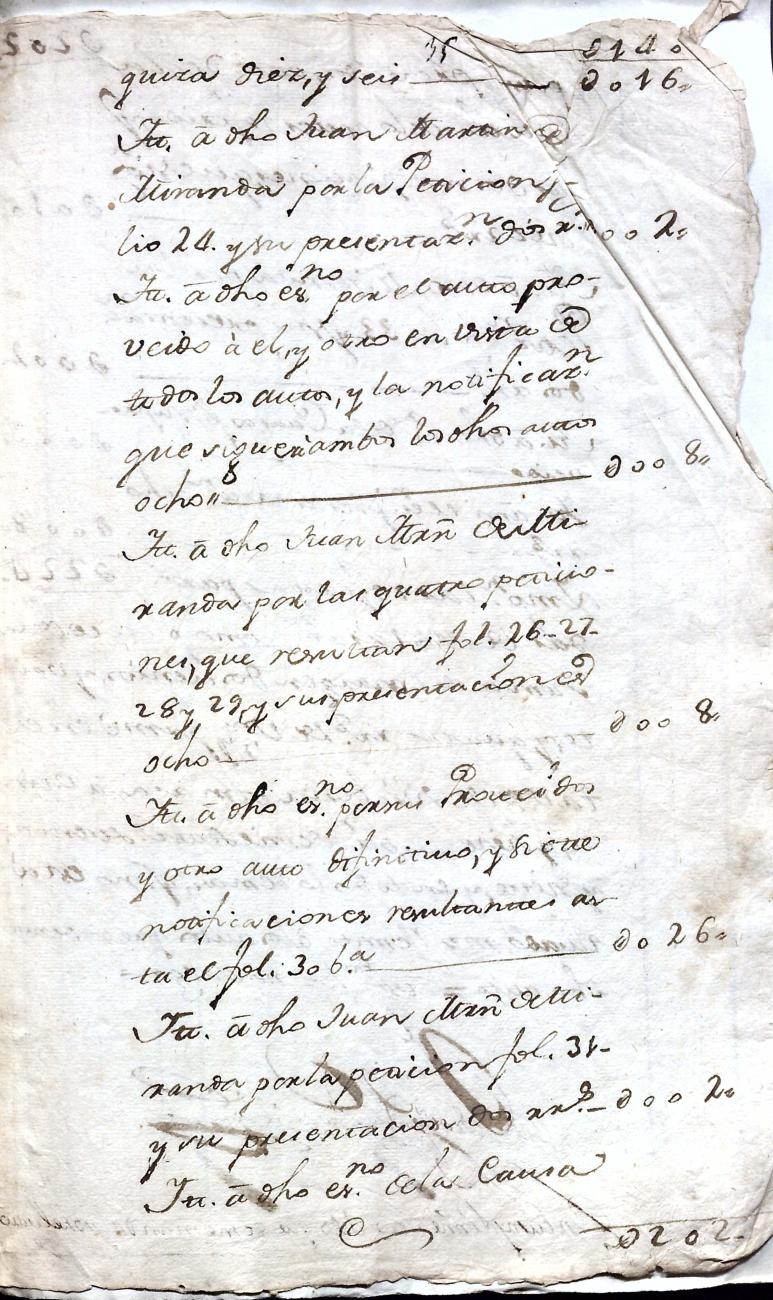 0140
quiza diez, y seis 0016"
Itt. â dho Juan Martin de
Miranda por la Peticion fo-
lio 24. y su presentaz.n dos r.s 0002"
Itt. â dho es.no por el auto pro-
veido à el, y otro en vista de
todos los autos, y la notificaz.n
que siguen ambos los dhos autos
ocho" 0008"
Itt. â dho Juan Mrñ de Mi-
randa por las quatro peticio-
nes, que resultan fol. 26-27-
28 y 29, y sus presentaciones
ocho 0008"
Itt. â dho es.no por sus Proveidos
y otro auto difinitivo, y siete
notificaciones resultantes as-
ta el fol. 30 b.ta 0026"
Itt. â dho Juan Mrñ de Mi-
randa por la peticion fol. 31-
y su presentacion dos rr.s 0002"
Itt. â dho es.no de la Causa
0202"